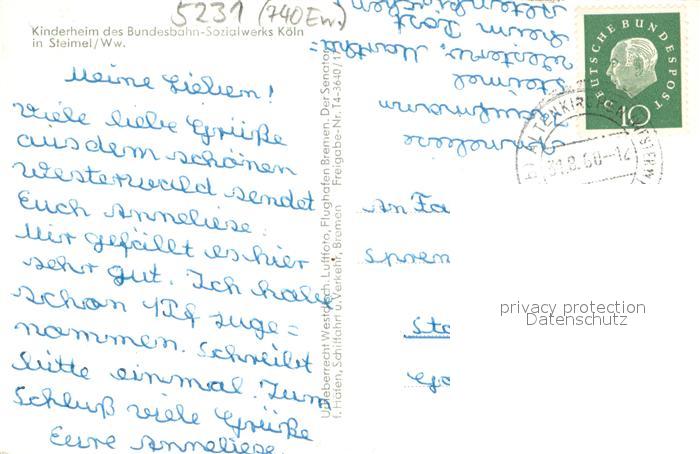 5231 (740 Ew.)
Kinderheim des Bundesbahn-Sozialwerks Köln
in Steimel/Ww.
Meine Lieben!
Viele liebe Grüße
aus dem schönen
Westerwald sendet
Euch Anneliese.
Mir gefällt es hier
sehr gut. Ich habe
schon 1 Pf zuge=
nommen. Schreibt
bitte einmal. Zum
Schluß viele Grüße
Eure Anneliese.
Urheberrecht Westdtsch. Luftfoto, Flughafen Bremen. Der Senator
f. Häfen, Schiffahrt u. Verkehr, Bremen Freigabe-Nr. T4-3640/1
Anneliese
Steimel
Westerw.
DEUTSCHE BUNDESPOST
10
ALTENKIRCHEN (WESTERW)
31.8.60-12
An Fa
Spren
Sta
privacy protection
Datenschutz